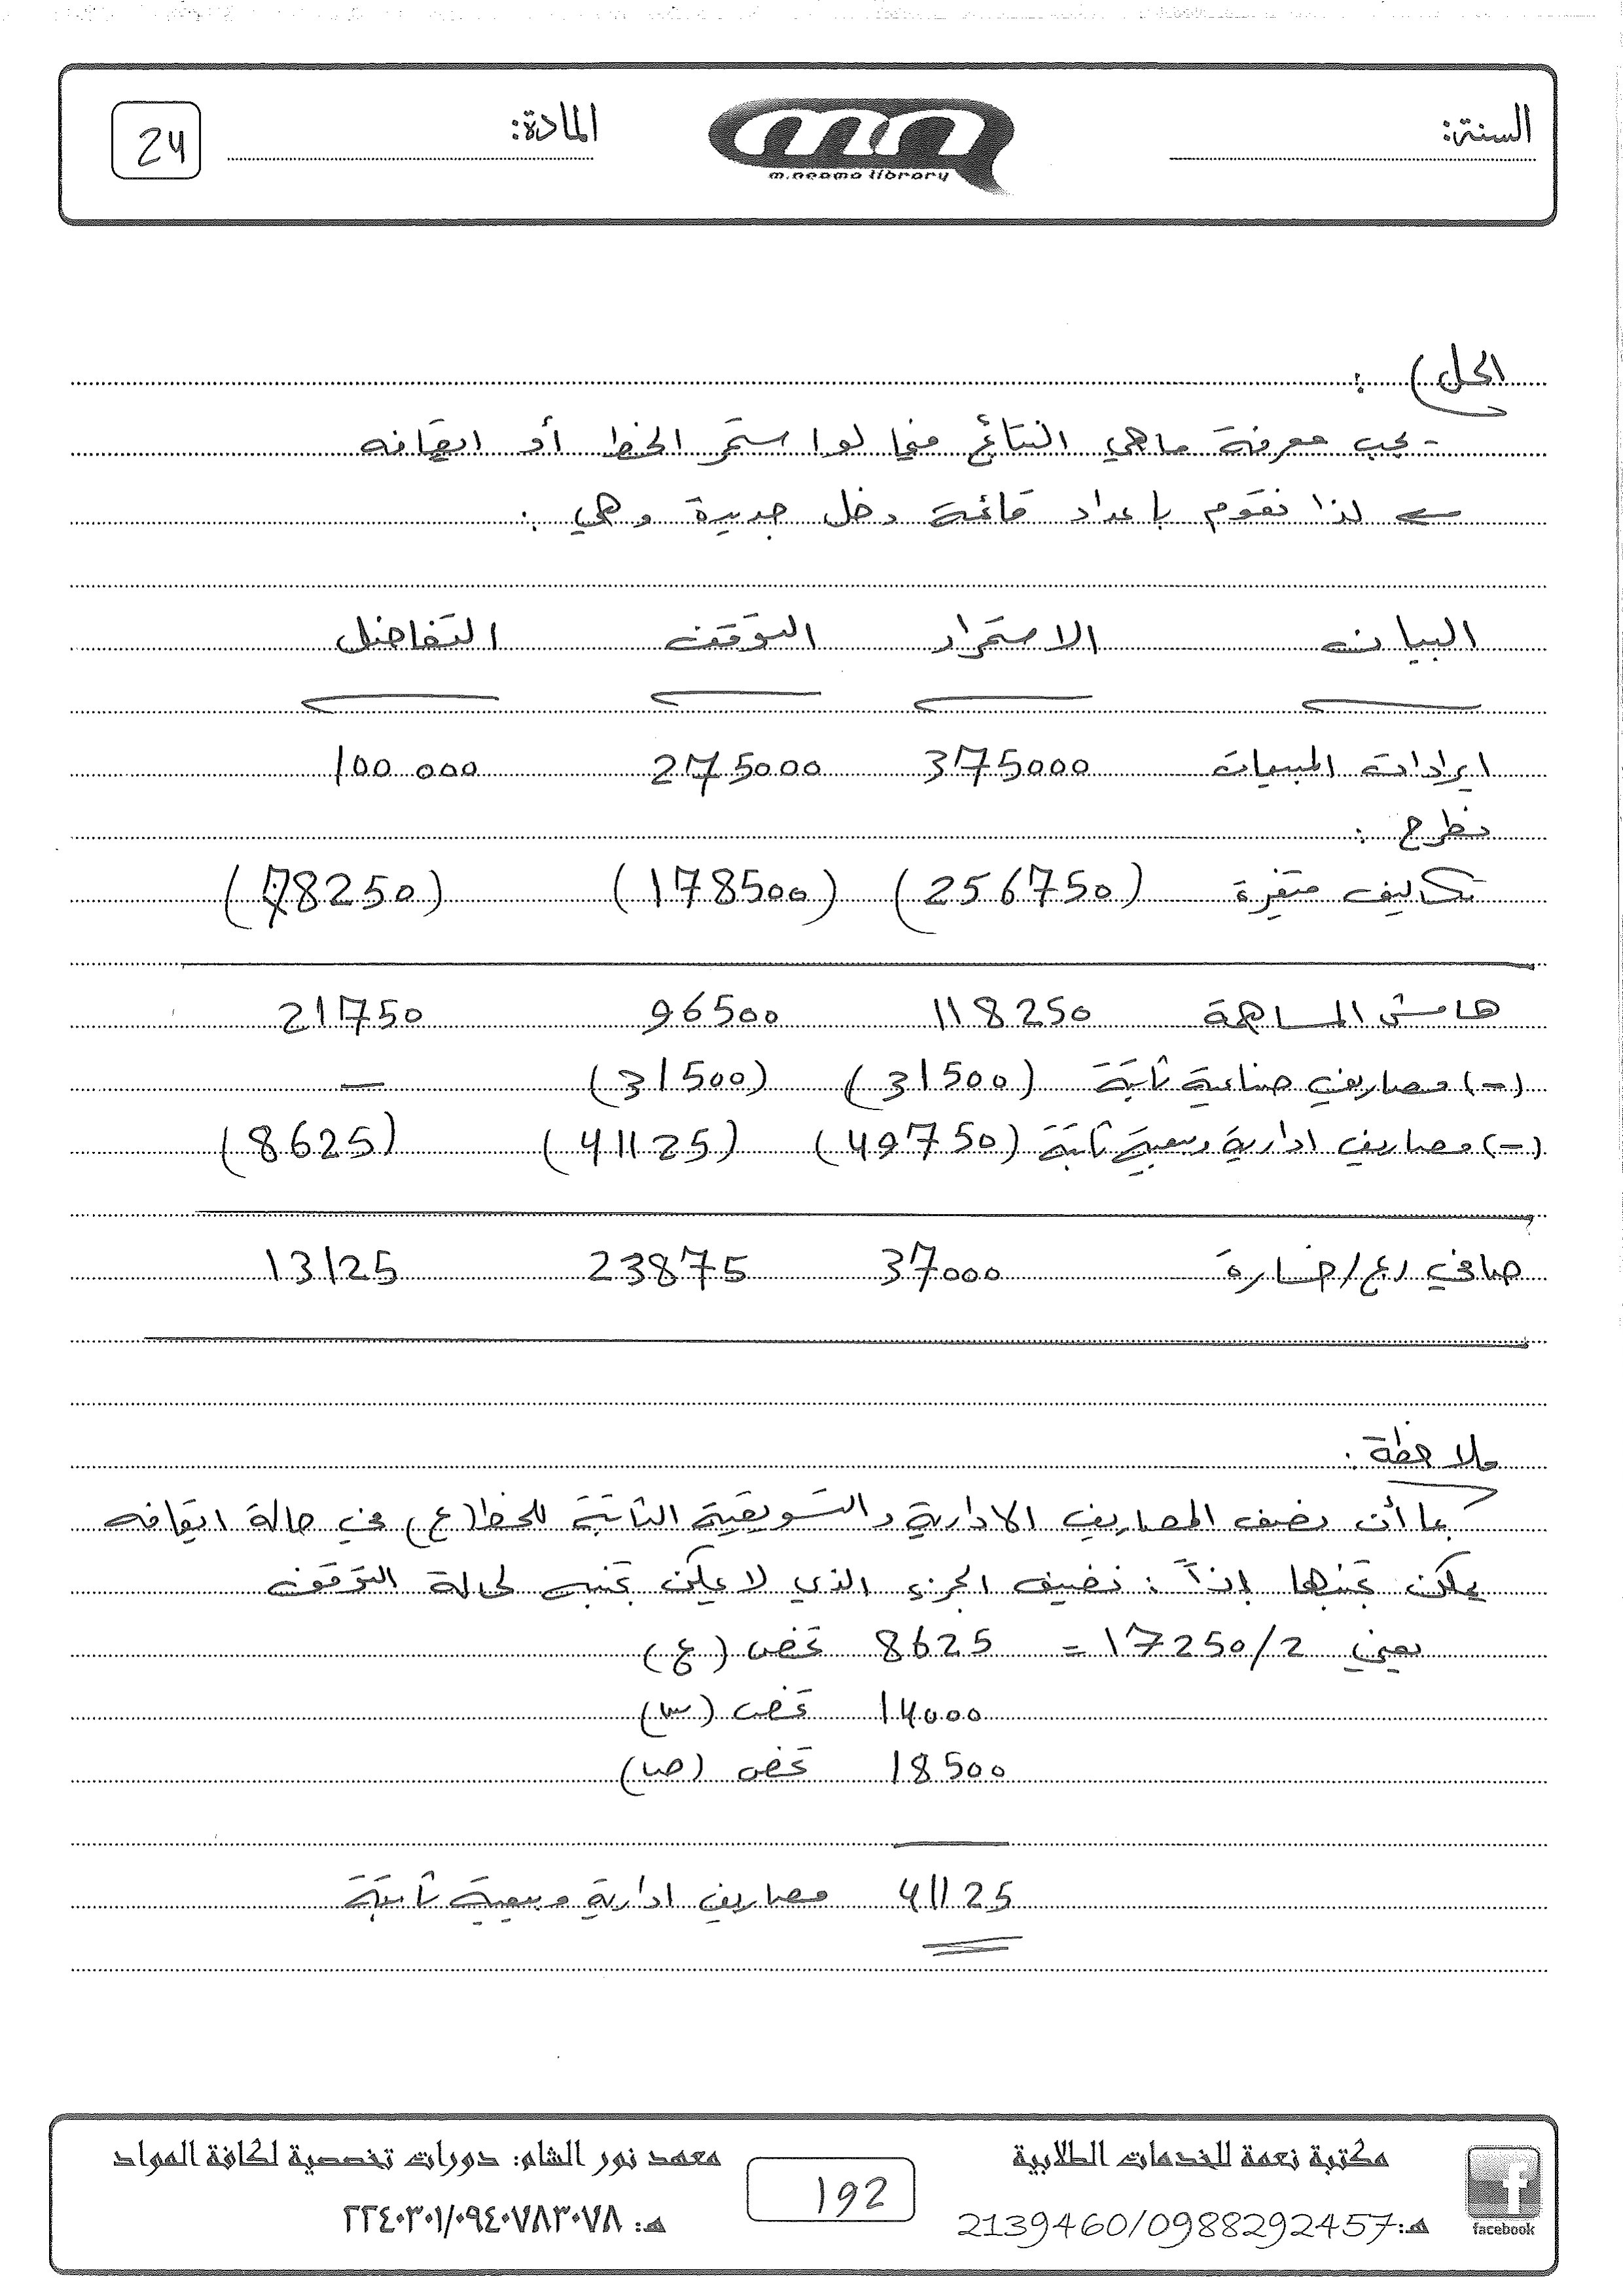 السنة:
m.neama library
المادة:
24
الحل) :
- يجب معرفة ماهي النتائج فيما لو استمر الخط أو ايقافه
لذا نقوم باعداد قائمة دخل جديدة وهي :
البيان الاستمرار التوقف التفاضل
ايرادات المبيعات 375000 275000 100000
نطرح :
تكاليف متغيرة (256750) (178500) (78250)
هامش المساهمة 118250 96500 21750
(-) مصاريف صناعية ثابتة (31500) (31500) —
(-) مصاريف ادارية وبيعية ثابتة (49750) (41125) (8625)
صافي ربح/خسارة 37000 23875 13125
ملاحظة :
بما أن نصف المصاريف الادارية والتسويقية الثابتة للخط (ع) في حالة ايقافه
يمكن تجنبها إذاً : نضيف الجزء الذي لا يمكن تجنبه لحالة التوقف
يعني 17250/2 = 8625 تخص (ع)
14000 تخص (س)
18500 تخص (ص)
41125 مصاريف ادارية وبيعية ثابتة
facebook
مكتبة نعمة للخدمات الطلابية
هـ: 2139460/0988292457
192
معهد نور الشام: دورات تخصصية لكافة المواد
هـ: ٢٢٤٠٣٠١/٠٩٤٠٧٨٣٠٧٨